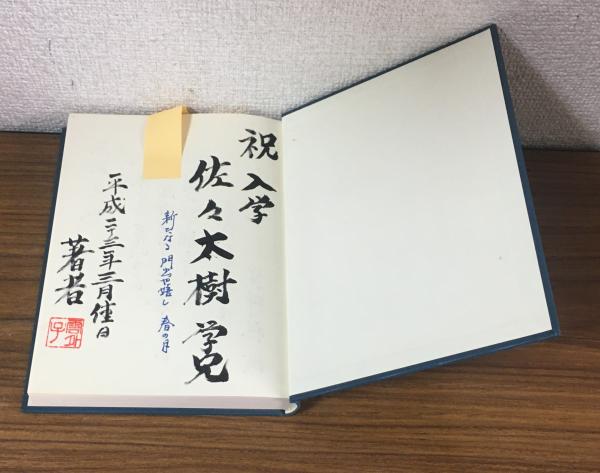 祝 入学
佐々太樹 学兄
新たなる 門出や嬉し 春の月
平成二十三年三月佳日
著者